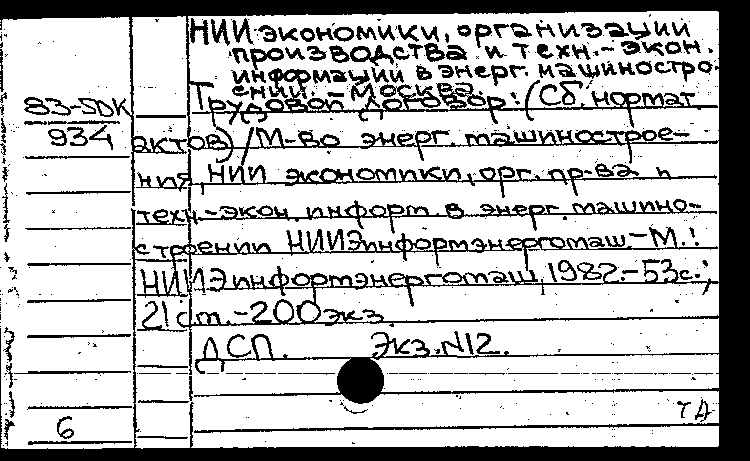 НИИ экономики, организации
производства и техн.-экон.
информации в энерг. машиностро-
ении. - Москва.
83-5DK
Трудовой договор: (Сб. нормат.
934
актов) / М-во энерг. машинострое-
ния, НИИ экономики, орг. пр-ва и
техн.-экон. информ. в энерг. машино-
строении НИИЭинформэнергомаш.-М.:
НИИЭинформэнергомаш, 1982.-53с.;
21 см.-200 экз.
ДСП. Экз. N12.
6